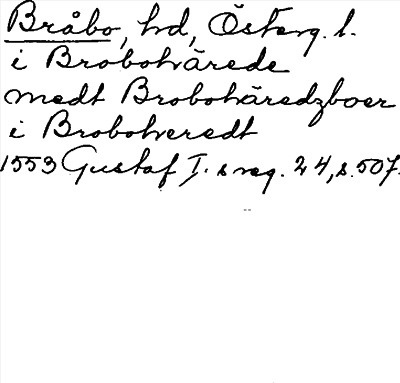 Bråbo, hd, Österg. l.
i Brobohärede
medt Brobohäredzboer
i Brobohveredt
1553 Gustaf I. s reg. 24, s. 507.